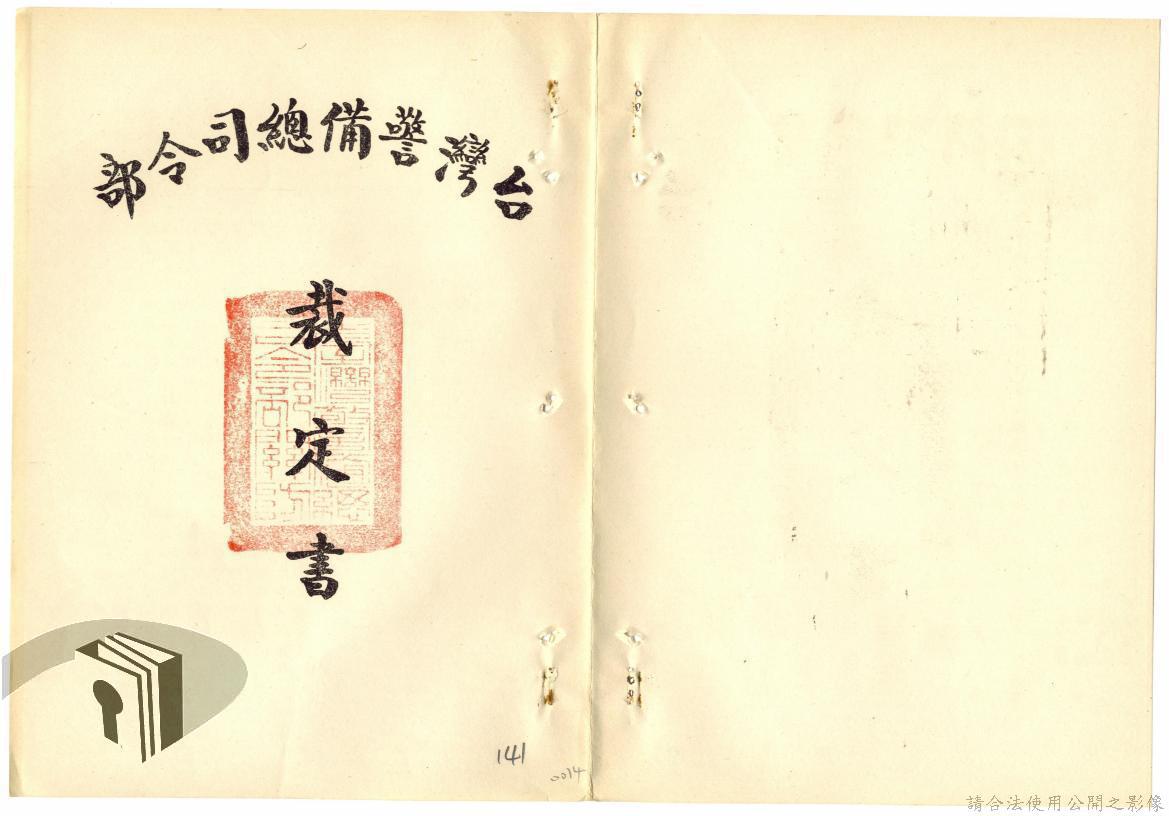 台灣警備總司令部
裁定書
141
0014
請合法使用公開之影像